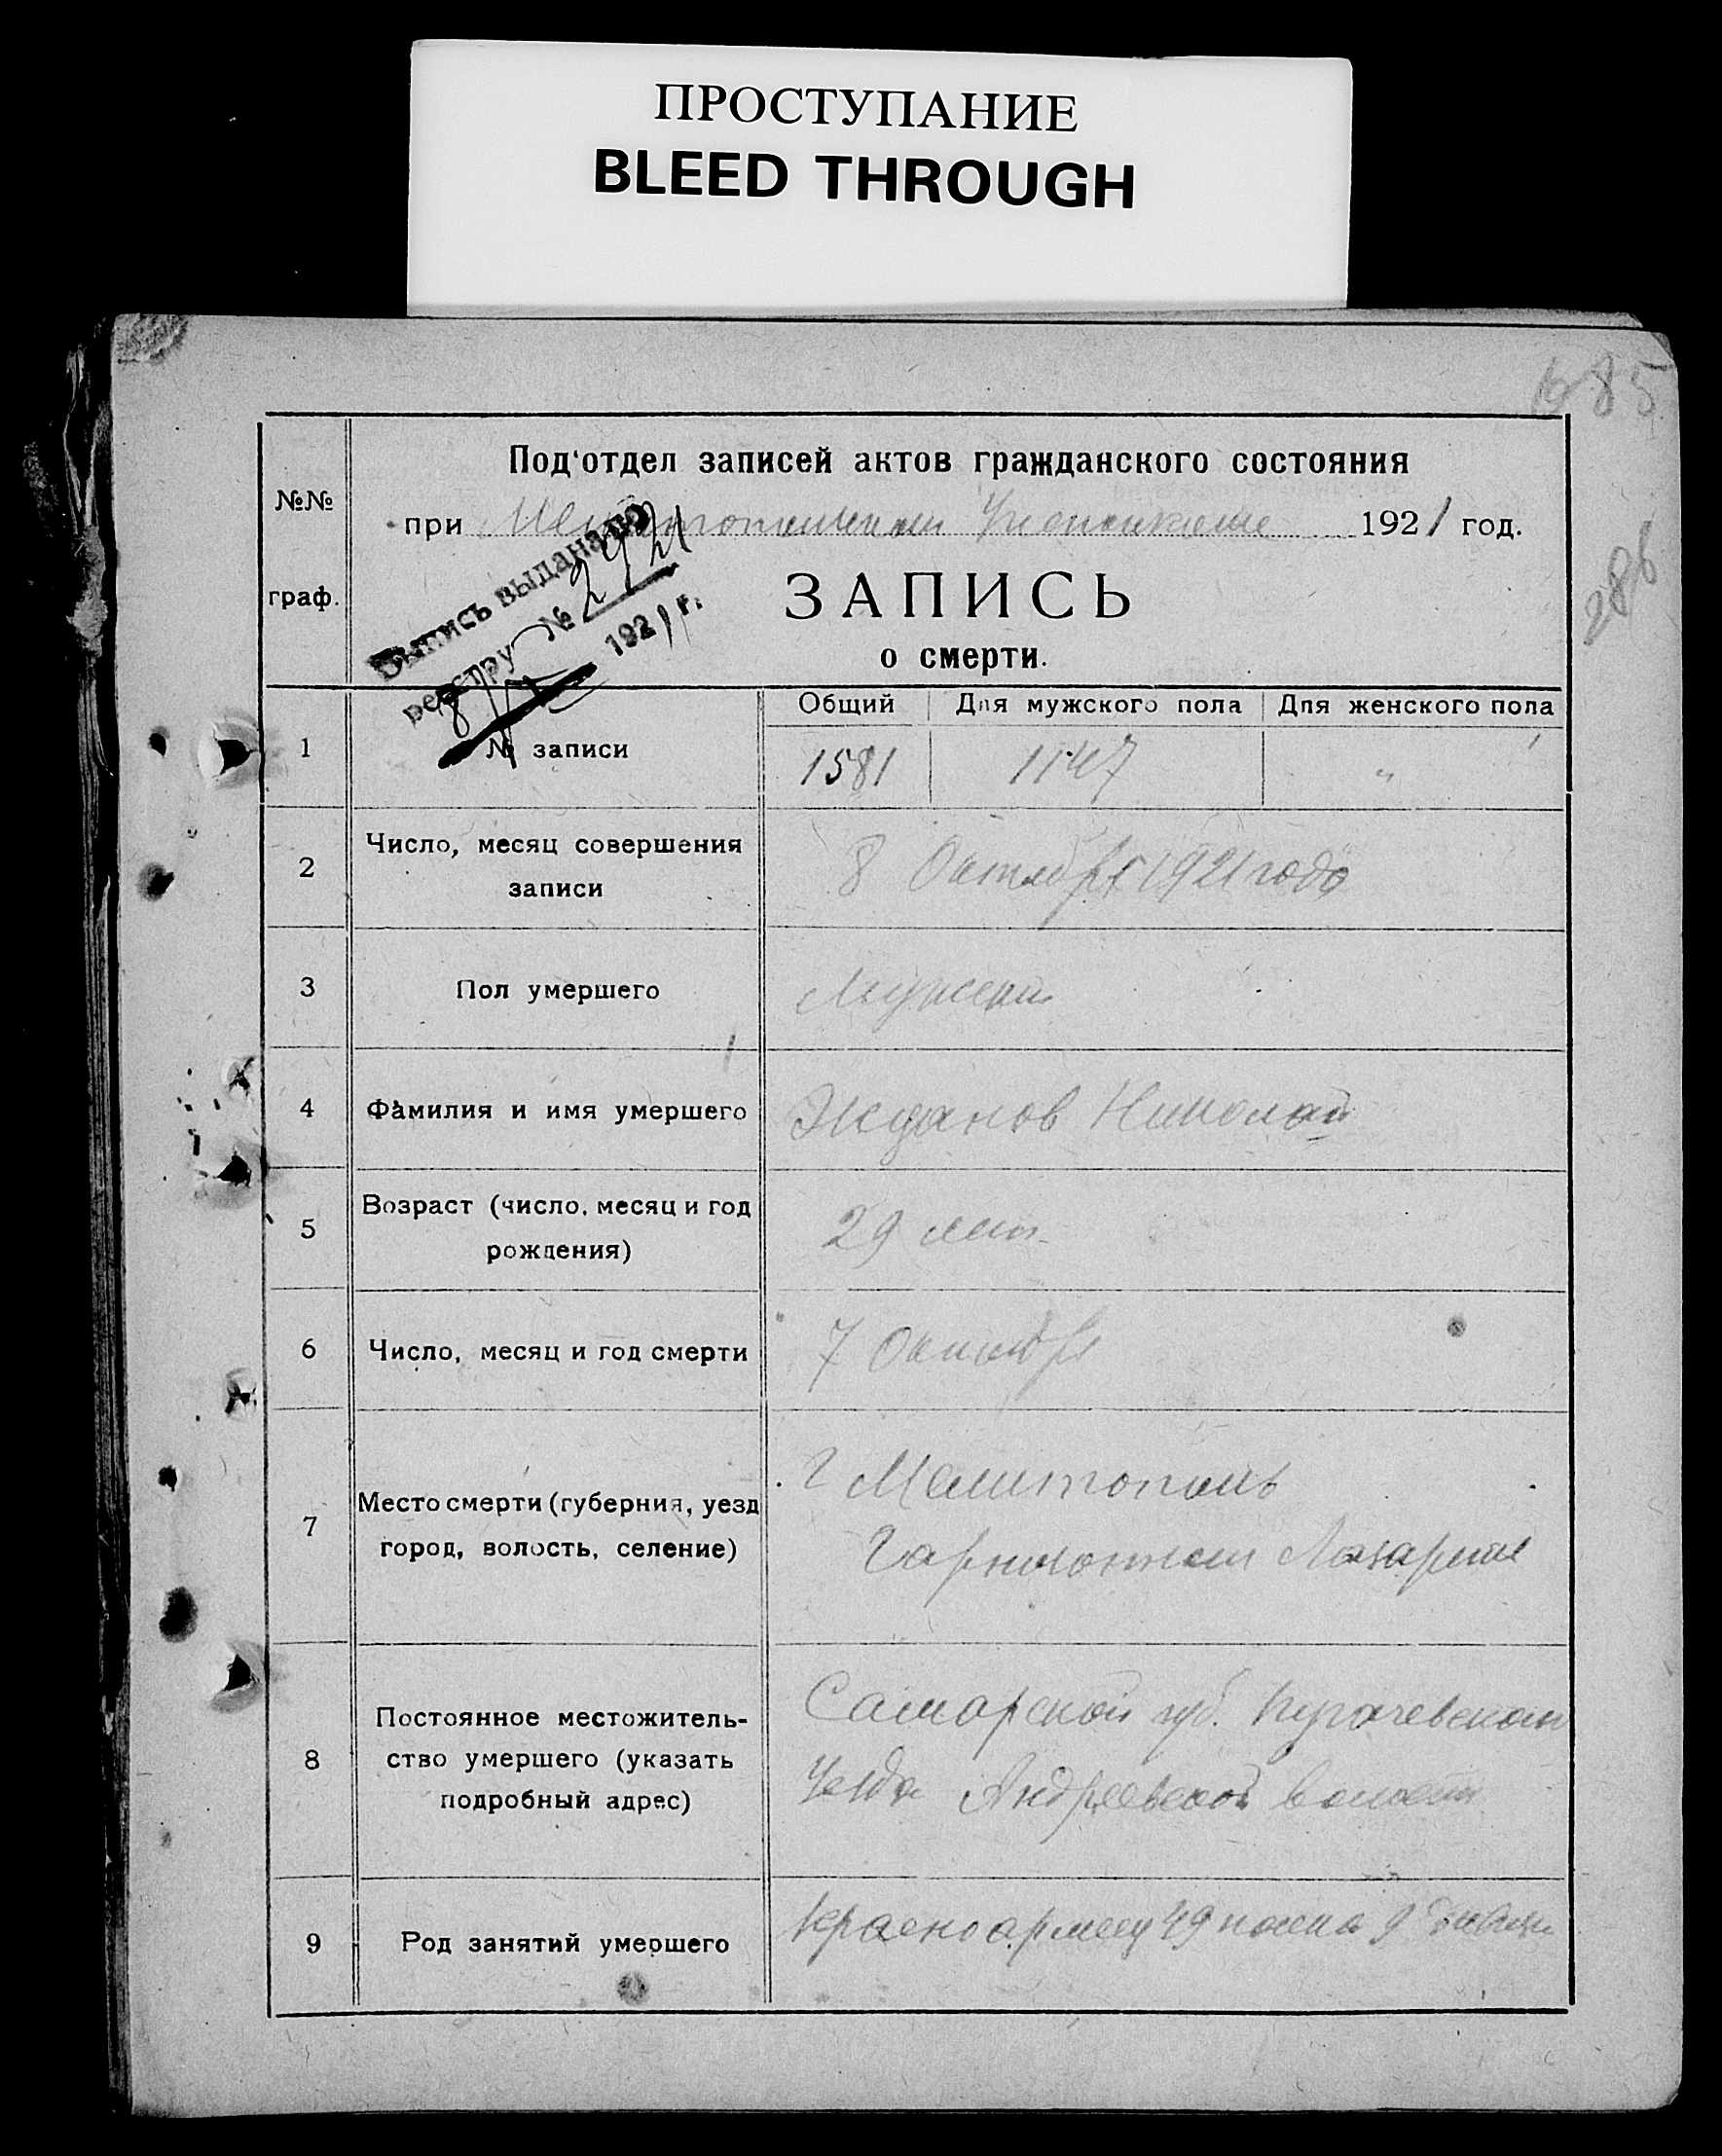 ПРОСТУПАНИЕ
BLEED THROUGH
685
286
Под'отдел записей актов гражданского состояния
№№
граф.
при Мелитопольском Уисполкоме 1921 год.
ЗАПИСЬ
о смерти.
Выпись выдана по
реестру № 2921
8/X 1921 г.
Общий Для мужского пола Для женского пола
1 № записи 1581 1147 "
2 Число, месяц совершения
записи
8 Октября 1921 года
3 Пол умершего Мужской
4 Фамилия и имя умершего Жданов Николай
5 Возраст (число, месяц и год
рождения)
29 лет
6 Число, месяц и год смерти 7 Октября
7 Место смерти (губерния, уезд
город, волость, селение)
г Мелитополь
Гарнизонный Лазарет
8 Постоянное местожитель-
ство умершего (указать
подробный адрес)
Самарской губ. Пугачевского
Уезда Андреевской волости
9 Род занятий умершего Красноармеец 49 полка 9 дивизи